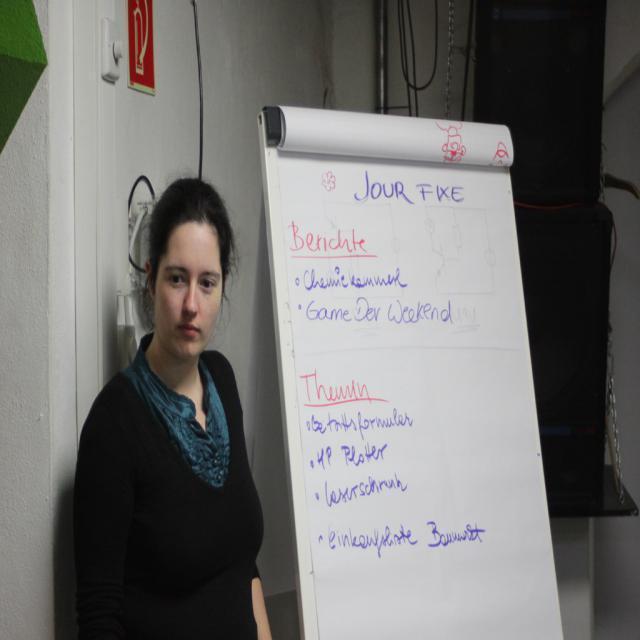 JOUR FIXE
Berichte
• Chemikammerl
• Game Dev Weekend !!!
Themen
• Beitrittsformular
• HP Ploter
• Laserschrank
• Einkaufsliste Baumarkt